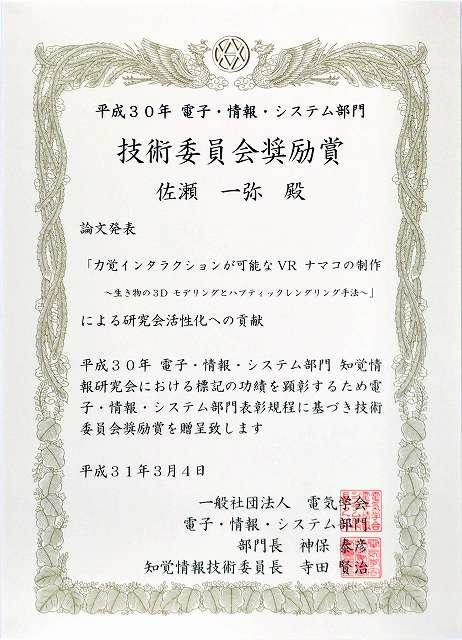 平成30年 電子・情報・システム部門
技術委員会奨励賞
佐瀬 一弥 殿
論文発表
「力覚インタラクションが可能なVR ナマコの制作
～生き物の3D モデリングとハプティックレンダリング手法～」
による研究会活性化への貢献
平成30年 電子・情報・システム部門 知覚情
報研究会における標記の功績を顕彰するため電
子・情報・システム部門表彰規程に基づき技術
委員会奨励賞を贈呈致します
平成31年3月4日
一般社団法人 電気学会
電子・情報・システム部門
部門長 神保 泰彦
知覚情報技術委員長 寺田 賢治